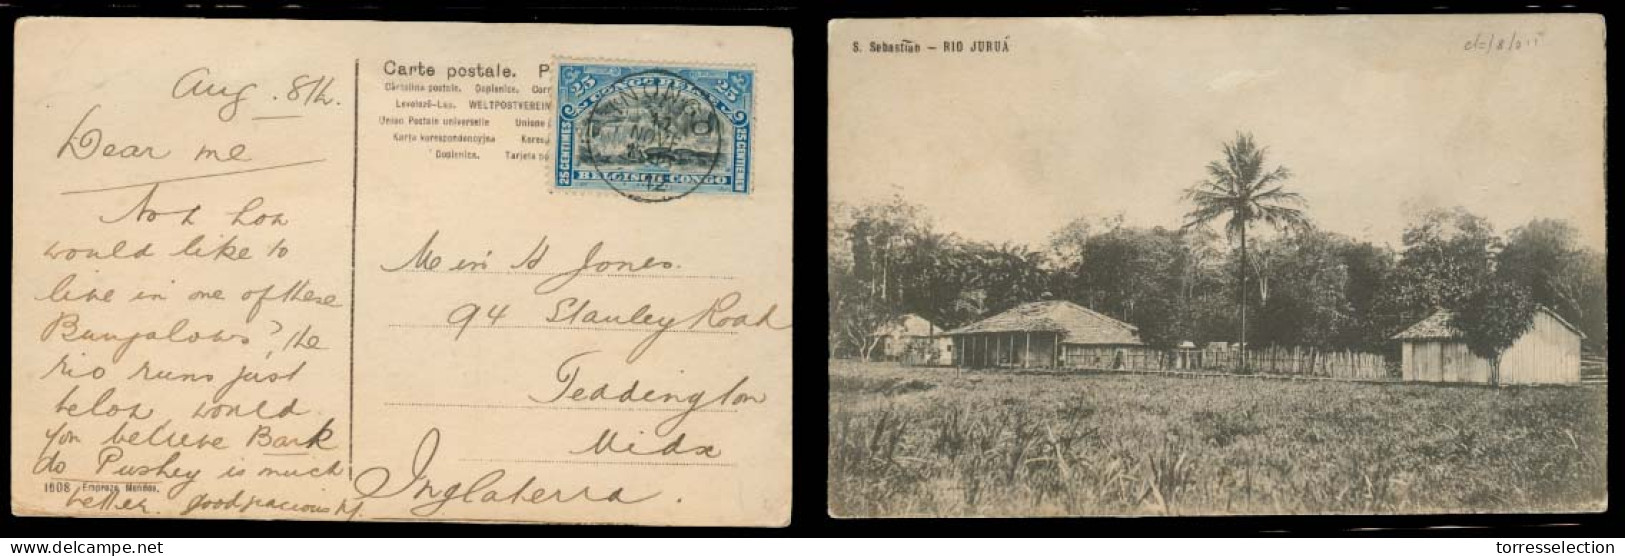 Aug. 8th.
Dear me
Now how
would like to
live in one of these
Bungalows? the
rio runs just
below would
you believe Bark
do Pushey is much
better. good gracious
1608 Empreza Mendes.
Carte postale. P
Cartolina postale. Dopisnice. Corr
Levelező-Lap. WELTPOSTVEREIN
Union Postale universelle Unione
Karta korespondencyjna Keres
Dopisnice. Tarjeta po
25 CONGO BELGE 25
25 CENTIMES
25 CENTIEMEN
BELGISCH-CONGO
INONGO
12
NOV
12
H Jones.
94 Stanley Road
Teddington
Midx
Inglaterra.
S. Sebastião - RIO JURUÁ
torresselection.com